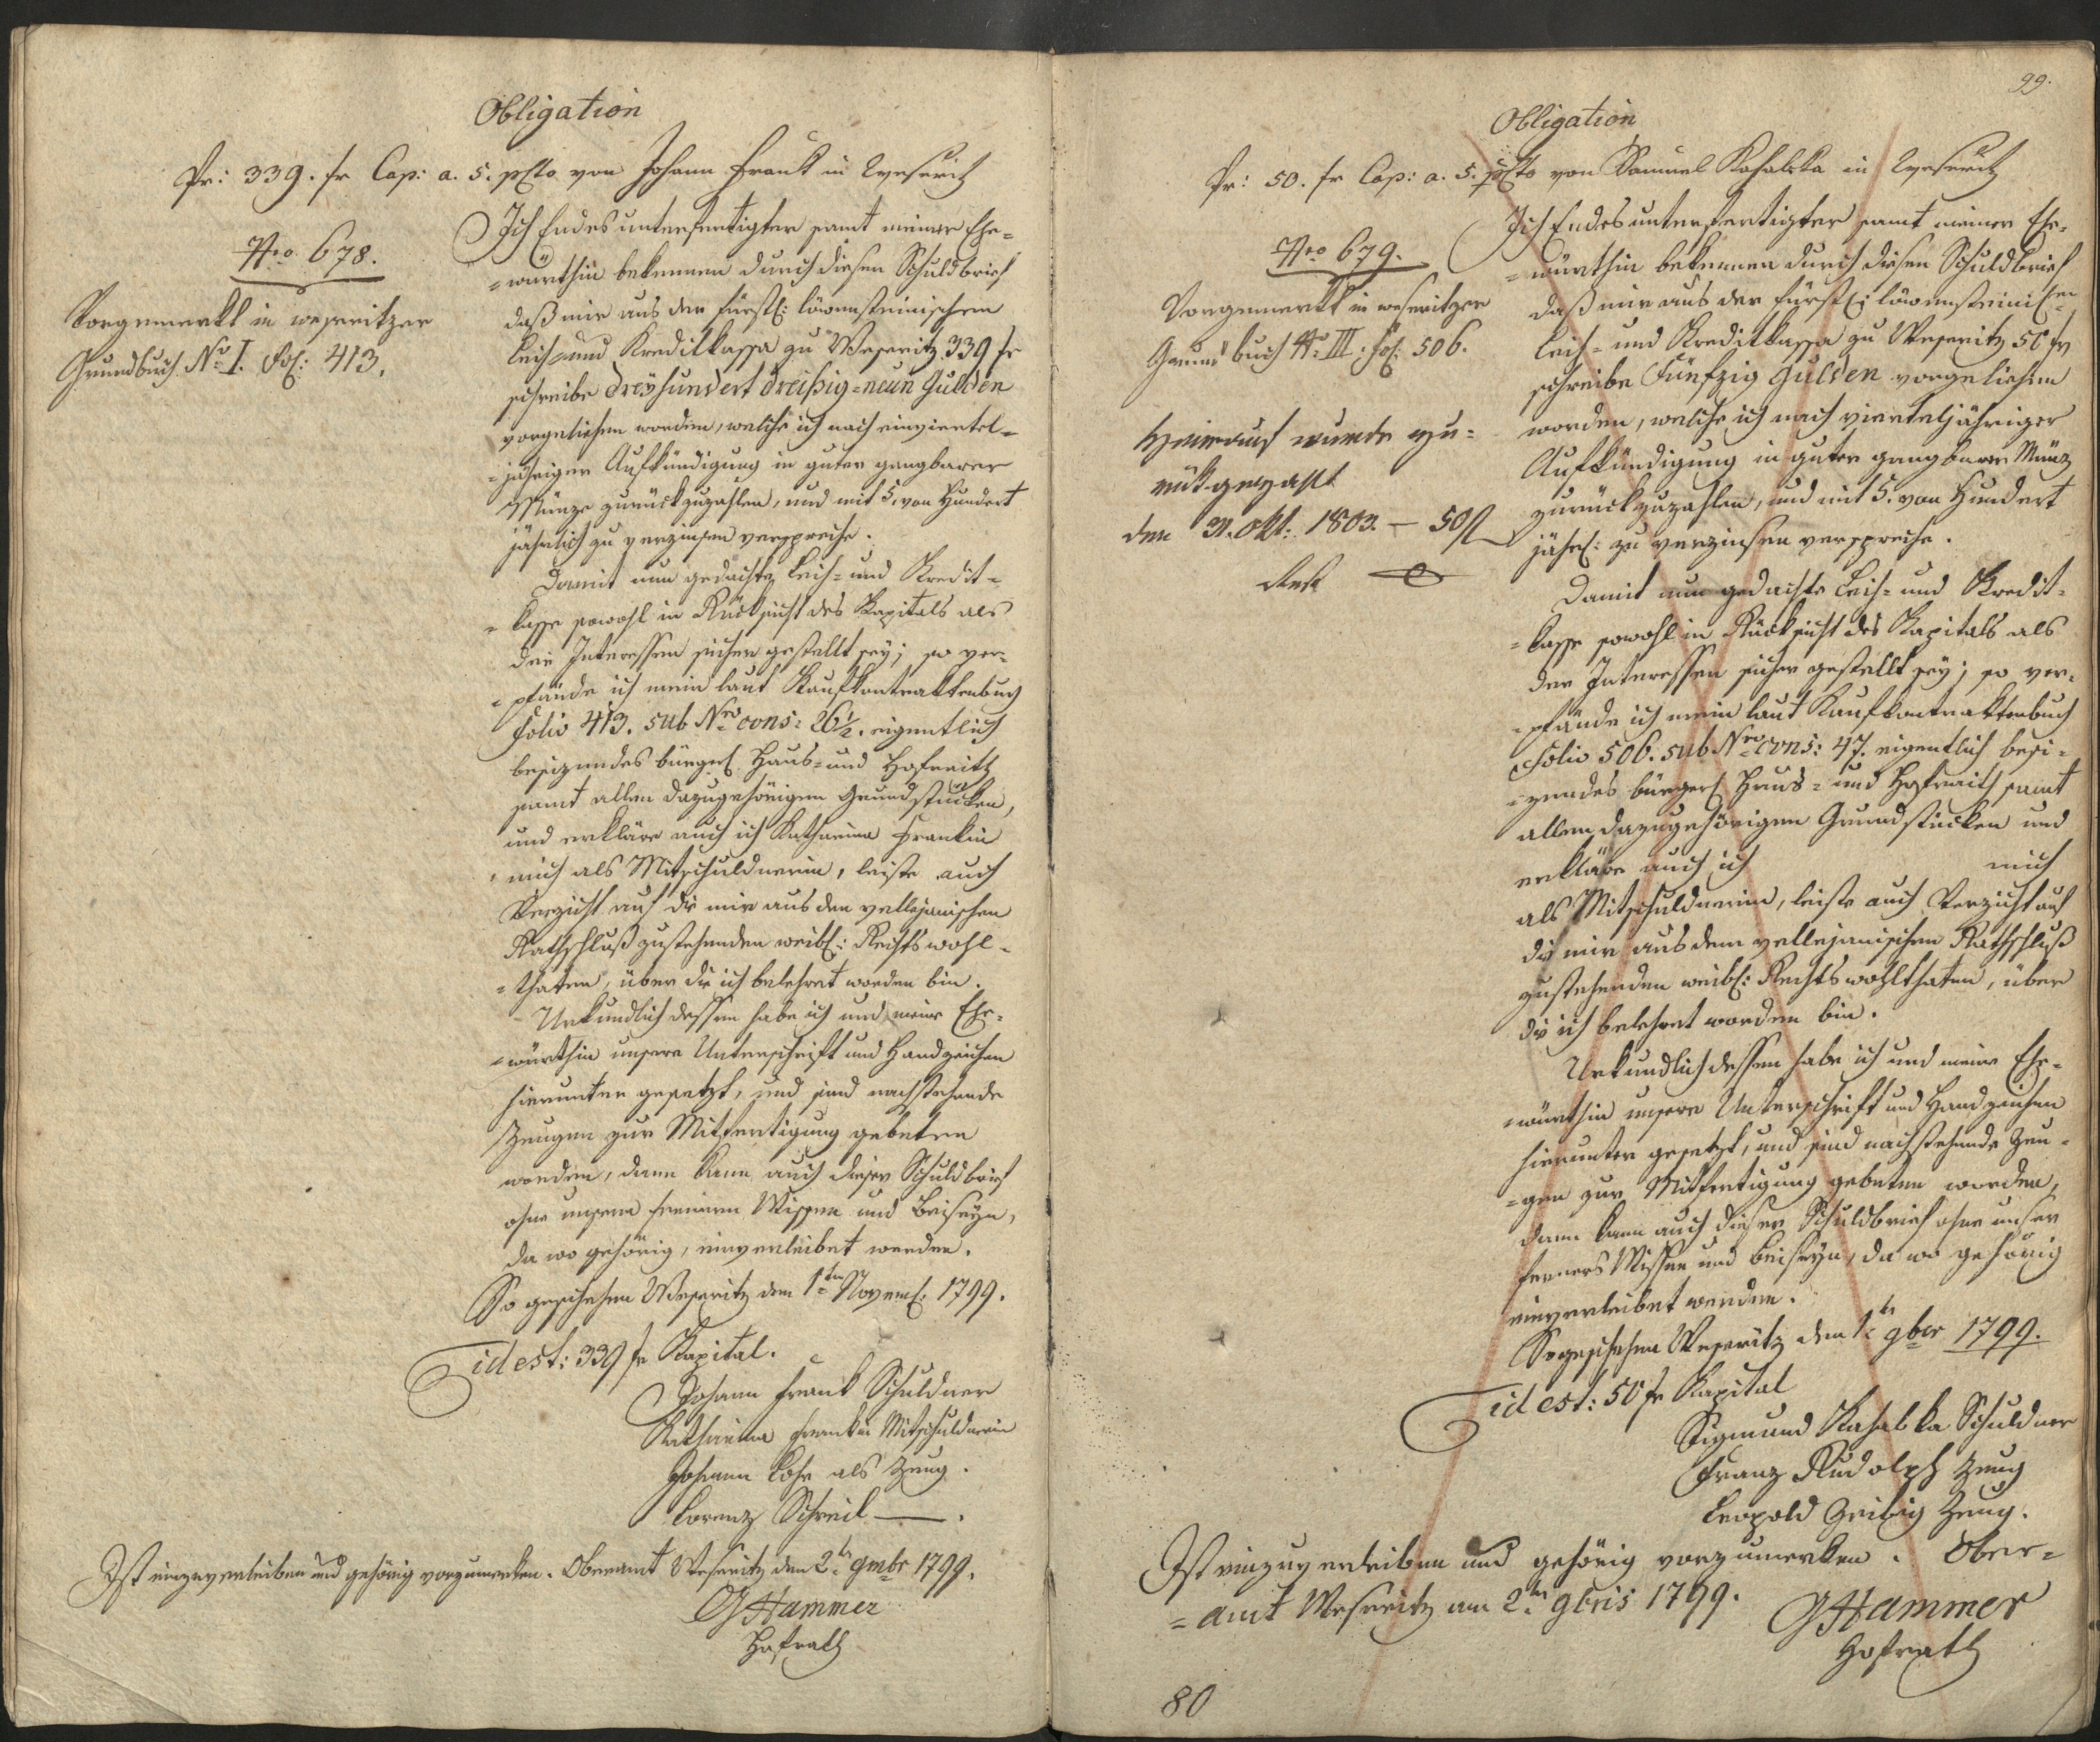 Obligation
Pr: 339. fr Cap: a. 5. pCto von Johann Frank in Weseritz
Nro 678.
Vorgemerkt in weseritzer
Grundbuch No I. Fol: 413.
Ich Endesunterfertigter samt meiner Ehe-
-würthin bekennen durch diesen Schuldbrief
daß mir aus der fürstl: löwensteinischen
Leih- und Kreditkassa zu Weseritz 339 fr
schreibe Dreyhundert dreißig-neun Gulden
vorgeliehen worden, welche ich nach einviertel-
-jähriger Aufkündigung in guter gangbarer
Münze zurückzuzahlen, und mit 5. von Hundert
jährlich zu verzinsen verspreche.
Damit nun gedachte Leih- und Kredit-
-kasse sowohl in Rücksicht des Kapitals als
der Interessen sicher gestellt sey; so ver-
-pfände ich mein laut Kaufkontraktenbuch
Folio 413. sub Nro cons: 26½. eigentlich
besizendes bürgerl: Haus- und Hofraith
samt allen dazugehörigen Grundstücken,
und erkläre auch ich Katharina Frankin
mich als Mitschuldnerin, leiste auch
Verzicht auf die mir aus den vellejanischen
Rathschluß zustehenden weibl: Rechtswohl-
-thaten, über die ich belehret worden bin.
Urkundlich dessen habe ich und meine Ehe-
-würthin unsere Unterschrift und Handzeichen
hierunter gesetzt, und sind nachstehende
Zeugen zur Mitfertigung gebeten
worden, dann kann auch dieser Schuldbrief
ohne unsern fernern Wissen und Beiseyn,
da wo gehörig, einverleibet werden.
So geschehen Weseritz den 1ten Novemb: 1799.
id est: 339 fr Kapital.
Johann Frank Schuldner
Katharina Frankin Mitschuldnerin
Johann Lohr als Zeug.
Lorenz Schreil —.
Ist einzuverleiben und gehörig vorzumerken. Oberamt Weseritz den 2ten 9mbr 1799.
GHammer
Hofrath
99.
Obligation
Pr: 50. fr Cap: a. 5. pCto von Samuel Kahabka in Weseritz
Nro 679.
Vorgemerkt in weseritzer
Grundbuch No III. Fol: 506.
Hierauf wurde zu-
rükgezahlt
den 31. Okt: 1803. — 50 fl
Rest 0
Ich Endesunterfertigter samt meiner Ehe-
-würthin bekennen durch diesen Schuldbrief
daß mir aus der fürstl: löwensteinischen
Leih- und Kreditkassa zu Weseritz 50 fr
schreibe Fünfzig Gulden vorgeliehen
worden, welche ich nach vierteljähriger
Aufkündigung in guter gangbarer Münz
zurückzuzahlen, und mit 5. von Hundert
jährl: zu verzinsen verspreche.
Damit nun gedachte Leih- und Kredit-
-kasse sowohl in Rücksicht des Kapitals als
der Interessen sicher gestellt sey; so ver-
-pfände ich mein laut Kaufkontraktenbuch
Folio 506. sub Nro cons: 47. eigentlich besi-
-zendes bürgerl: Haus- und Hofraith samt
allen dazugehörigen Grundstücken und
erkläre auch ich mich
als Mitschuldnerin, leiste auch Verzicht auf
die mir aus dem vellejanischen Rathschluß
zustehenden weibl: Rechtswohlthaten, über
die ich belehret worden bin.
Urkundlich dessen habe ich und meine Ehe-
-würthin unsere Unterschrift und Handzeichen
hierunter gesetzt, und sind nachstehende Zeu-
-gen zur Mitfertigung gebeten worden,
dann kann auch dieser Schuldbrief ohne unser
ferners Wissen und Beiseyn, da wo gehörig
einverleibet werden.
So geschehen Weseritz den 1ten 9ber 1799.
id est: 50 fr Kapital
Sigmund Kahabka Schuldner
Franz Rudolph Zeug
Leopold Zeibig Zeug.
Ist einzuverleiben und gehörig vorzumerken. Ober-
-amt Weseritz am 2ten 9bris 1799.
GHammer
Hofrath
80